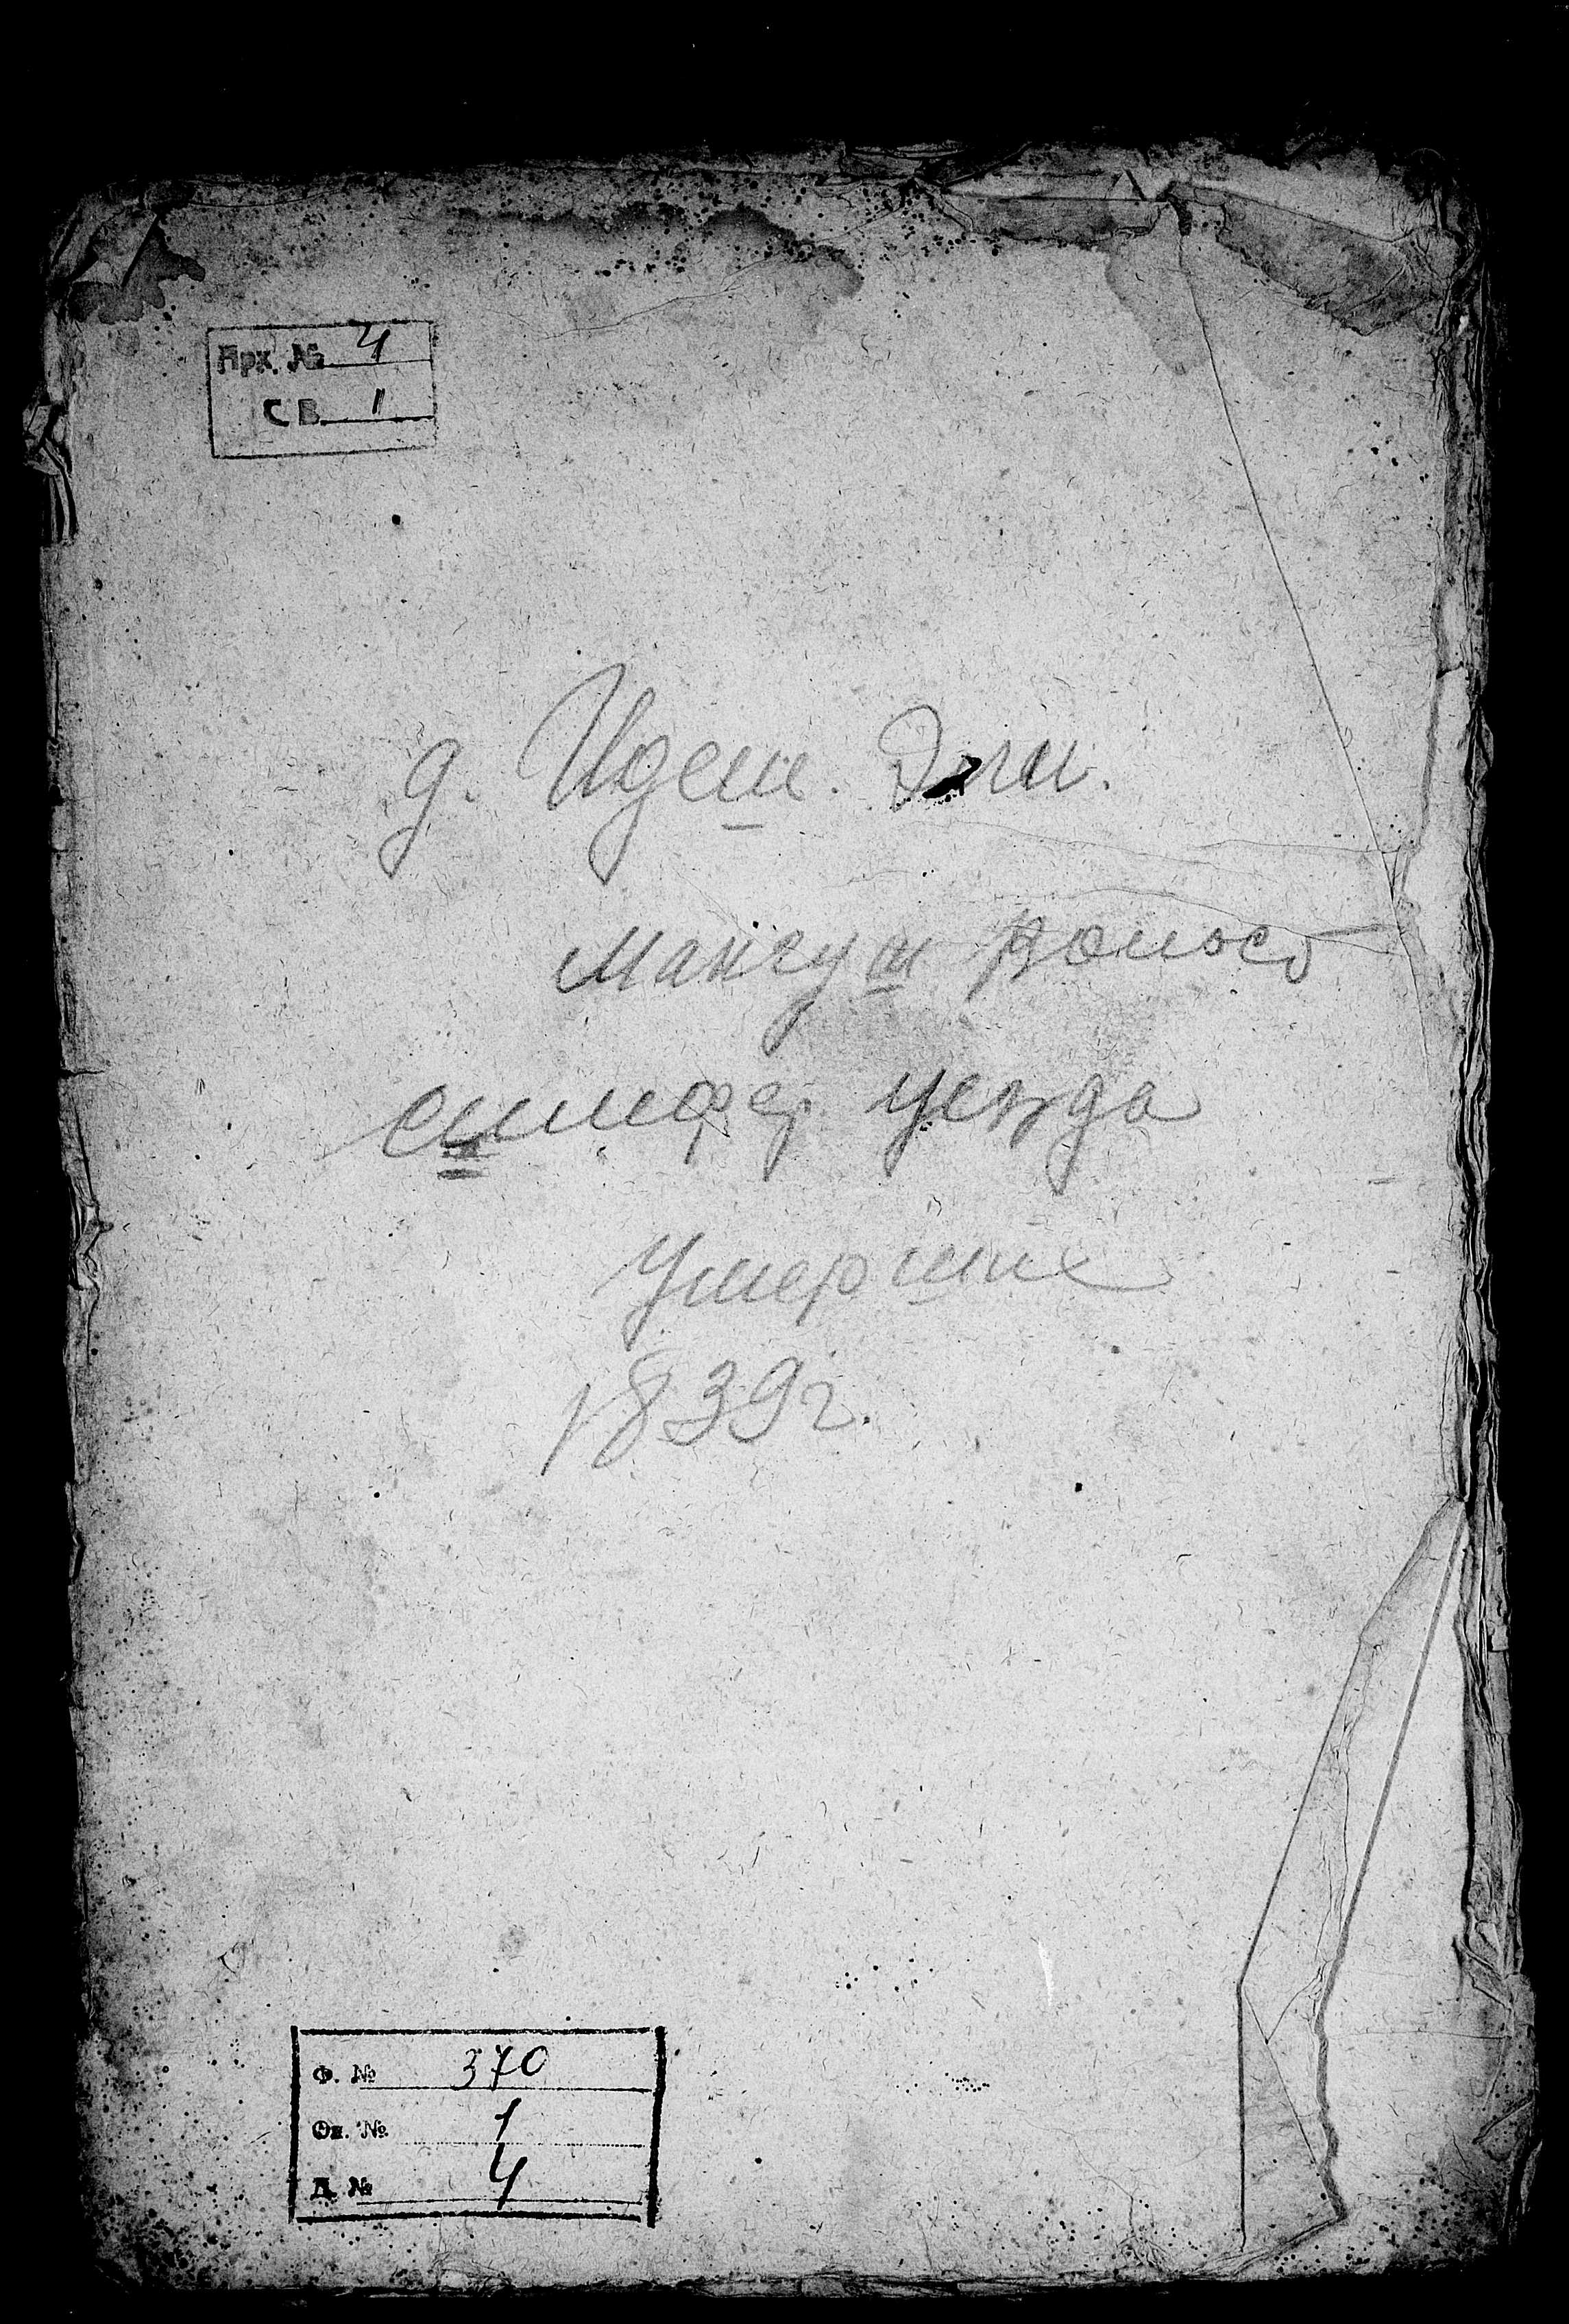 Арх. № 4
СВ. 1
д. Идеш. Эли.
Мангуш волост
симфер. уезда
Умерших
1839 г.
Ф. № 370
Оп. № 1
Д. № 4